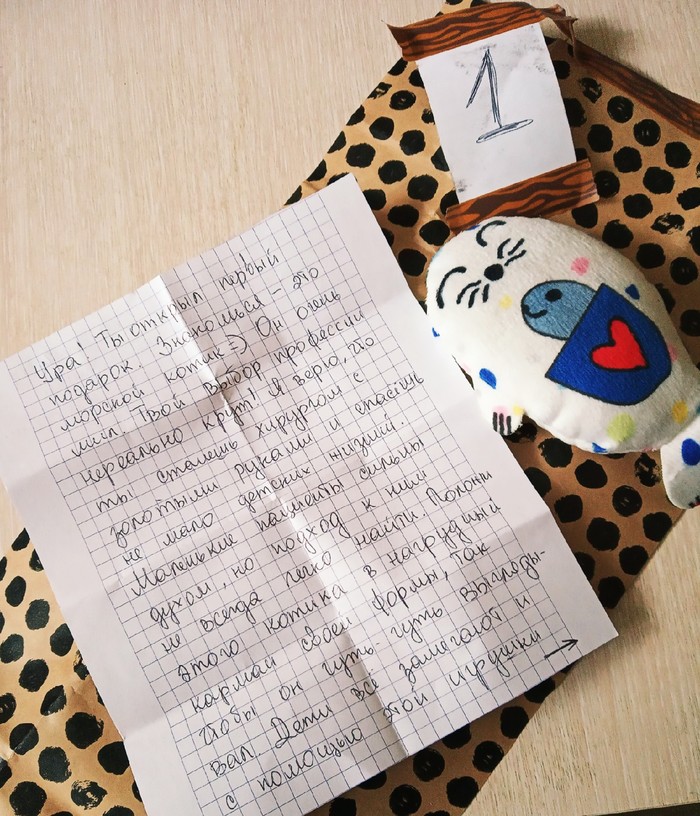 1
Ура! Ты открыл первый
подарок. Знакомься – это
морской котик =) Он очень
мил. Твой выбор профессии
нереально крут! Я верю, что
ты станешь хирургом с
золотыми руками и спасёшь
не мало детских жизней.
Маленькие пациенты сильны
духом, но подход к ним
не всегда легко найти. Положи
этого котика в нагрудный
карман своей формы, так
чтобы он чуть-чуть выгляды-
вал. Дети все замечают и
с помощью этой игрушки →